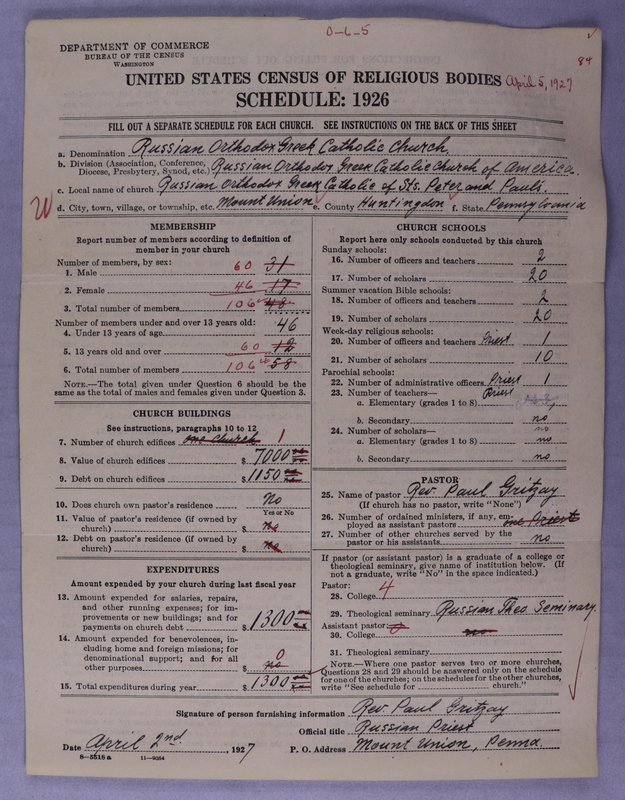 0-6-5
84
DEPARTMENT OF COMMERCE
BUREAU OF THE CENSUS
WASHINGTON
UNITED STATES CENSUS OF RELIGIOUS BODIES April 5, 1927
SCHEDULE: 1926
FILL OUT A SEPARATE SCHEDULE FOR EACH CHURCH. SEE INSTRUCTIONS ON THE BACK OF THIS SHEET
a. Denomination Russian Orthodox Greek Catholic Church
b. Division (Association, Conference, Diocese, Presbytery, Synod, etc.) Russian Orthodox Greek Catholic Church of America.
c. Local name of church Russian Orthodox Greek Catholic of Sts. Peter and Pauls.
W d. City, town, village, or township, etc. Mount Union e. County Huntingdon f. State Pennsylvania
MEMBERSHIP
Report number of members according to definition of
member in your church
Number of members, by sex:
1. Male 60 31
2. Female 46 17
3. Total number of members 106 48
Number of members under and over 13 years old:
4. Under 13 years of age 46
5. 13 years old and over 60 12
6. Total number of members 106 58
NOTE.—The total given under Question 6 should be the
same as the total of males and females given under Question 3.
CHURCH BUILDINGS
See instructions, paragraphs 10 to 12
7. Number of church edifices one church 1
8. Value of church edifices $ 7000
9. Debt on church edifices $ 1150
10. Does church own pastor's residence No
Yes or No
11. Value of pastor's residence (if owned by
church) $ no
12. Debt on pastor's residence (if owned by
church) $ no
EXPENDITURES
Amount expended by your church during last fiscal year
13. Amount expended for salaries, repairs,
and other running expenses; for im-
provements or new buildings; and for
payments on church debt $ 1300
14. Amount expended for benevolences, in-
cluding home and foreign missions; for
denominational support; and for all
other purposes 0 no
15. Total expenditures during year $ 1300
CHURCH SCHOOLS
Report here only schools conducted by this church
Sunday schools:
16. Number of officers and teachers 2
17. Number of scholars 20
Summer vacation Bible schools:
18. Number of officers and teachers 2
19. Number of scholars 20
Week-day religious schools:
20. Number of officers and teachers Priest 1
21. Number of scholars 10
Parochial schools:
22. Number of administrative officers Priest 1
23. Number of teachers— Priest
a. Elementary (grades 1 to 8)
b. Secondary no
24. Number of scholars— no
a. Elementary (grades 1 to 8) no
b. Secondary no
PASTOR
25. Name of pastor Rev. Paul Gritzay
(If church has no pastor, write "None")
26. Number of ordained ministers, if any, em-
ployed as assistant pastors one Priest
27. Number of other churches served by the
pastor or his assistants no
If pastor (or assistant pastor) is a graduate of a college or
theological seminary, give name of institution below. (If
not a graduate, write "No" in the space indicated.)
Pastor:
28. College 4
29. Theological seminary Russian Theo. Seminary.
Assistant pastor: 0
30. College no
31. Theological seminary
NOTE.—Where one pastor serves two or more churches,
Questions 28 and 29 should be answered only on the schedule
for one of the churches; on the schedules for the other churches,
write "See schedule for church."
Signature of person furnishing information Rev. Paul Gritzay
Official title Russian Priest
Date April 2nd, 1927 P. O. Address Mount Union, Penna.
8-5518 a 11-9054